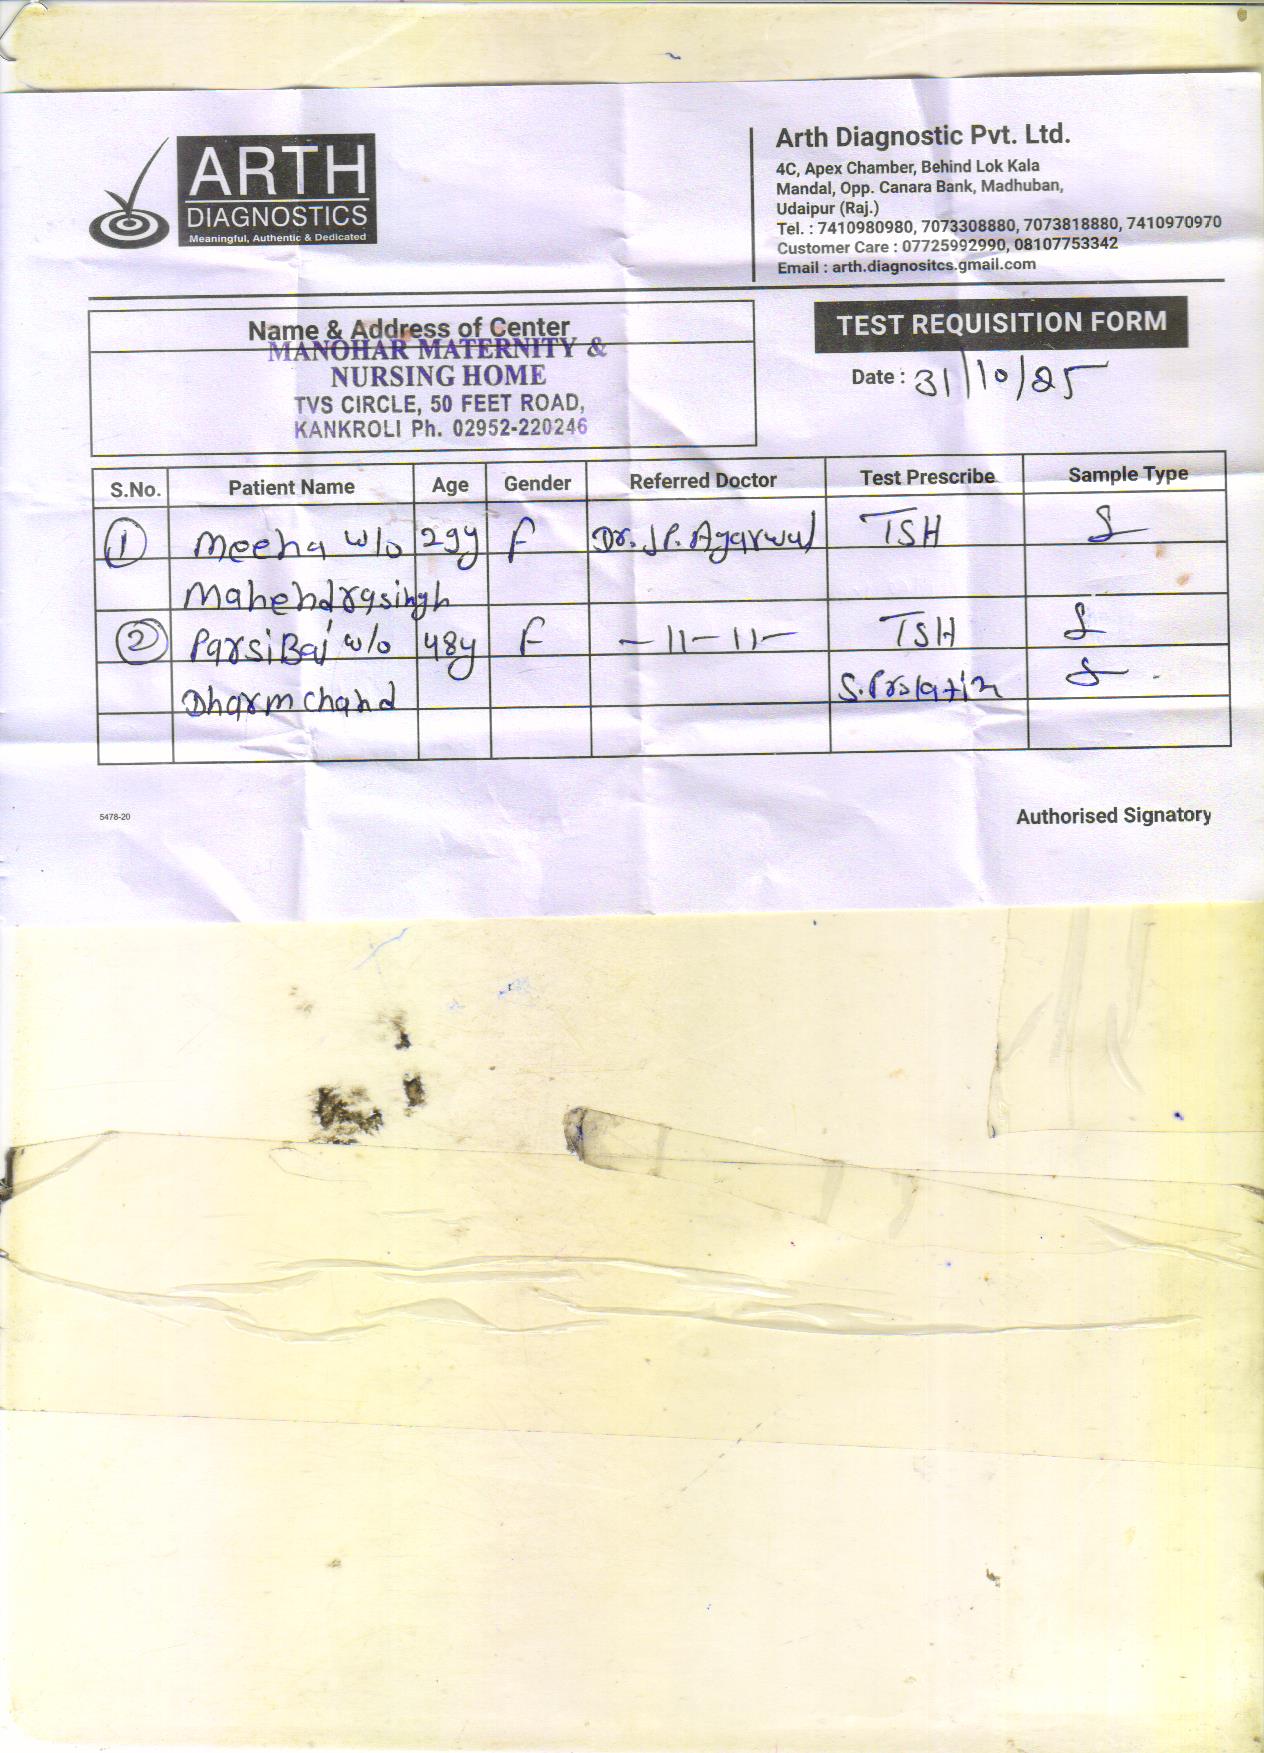 ARTH
DIAGNOSTICS
Meaningful, Authentic & Dedicated
Arth Diagnostic Pvt. Ltd.
4C, Apex Chamber, Behind Lok Kala
Mandal, Opp. Canara Bank, Madhuban,
Udaipur (Raj.)
Tel. : 7410980980, 7073308880, 7073818880, 7410970970
Customer Care : 07725992990, 08107753342
Email : arth.diagnositcs.gmail.com
Name & Address of Center
MANOHAR MATERNITY &
NURSING HOME
TVS CIRCLE, 50 FEET ROAD,
KANKROLI Ph. 02952-220246
TEST REQUISITION FORM
Date : 31/10/25
S.No. Patient Name Age Gender Referred Doctor Test Prescribe Sample Type
1 Meena w/o 29y F Dr. J.P. Agarwal TSH S
Mahendrasingh
2 Parsi Bai w/o 48y F -11-11- TSH S
Dharmchand S. Prolactin S
5478-20
Authorised Signatory